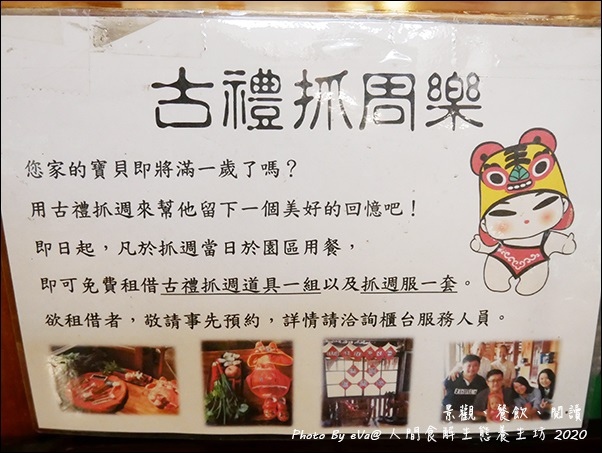 古禮抓周樂
您家的寶貝即將滿一歲了嗎？
用古禮抓週來幫他留下一個美好的回憶吧！
即日起，凡於抓週當日於園區用餐，
即可免費租借古禮抓週道具一組以及抓週服一套。
欲租借者，敬請事先預約，詳情請洽詢櫃台服務人員。
景觀、餐飲、閱讀
Photo By eVa@ 人間食解生態養生坊 2020